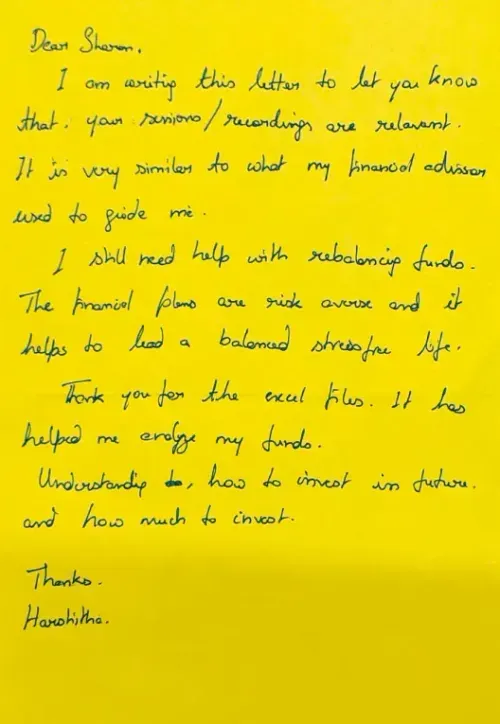 Dear Sharon,
I am writing this letter to let you know
that, your sessions/recordings are relevant.
It is very similar to what my financial advisor
used to guide me.
I still need help with rebalancing funds.
The financial plans are risk averse and it
helps to lead a balanced stressfree life.
Thank you for the excel files. It has
helped me analyze my funds.
Understanding to, how to invest in future.
and how much to invest.
Thanks.
Harshitha.